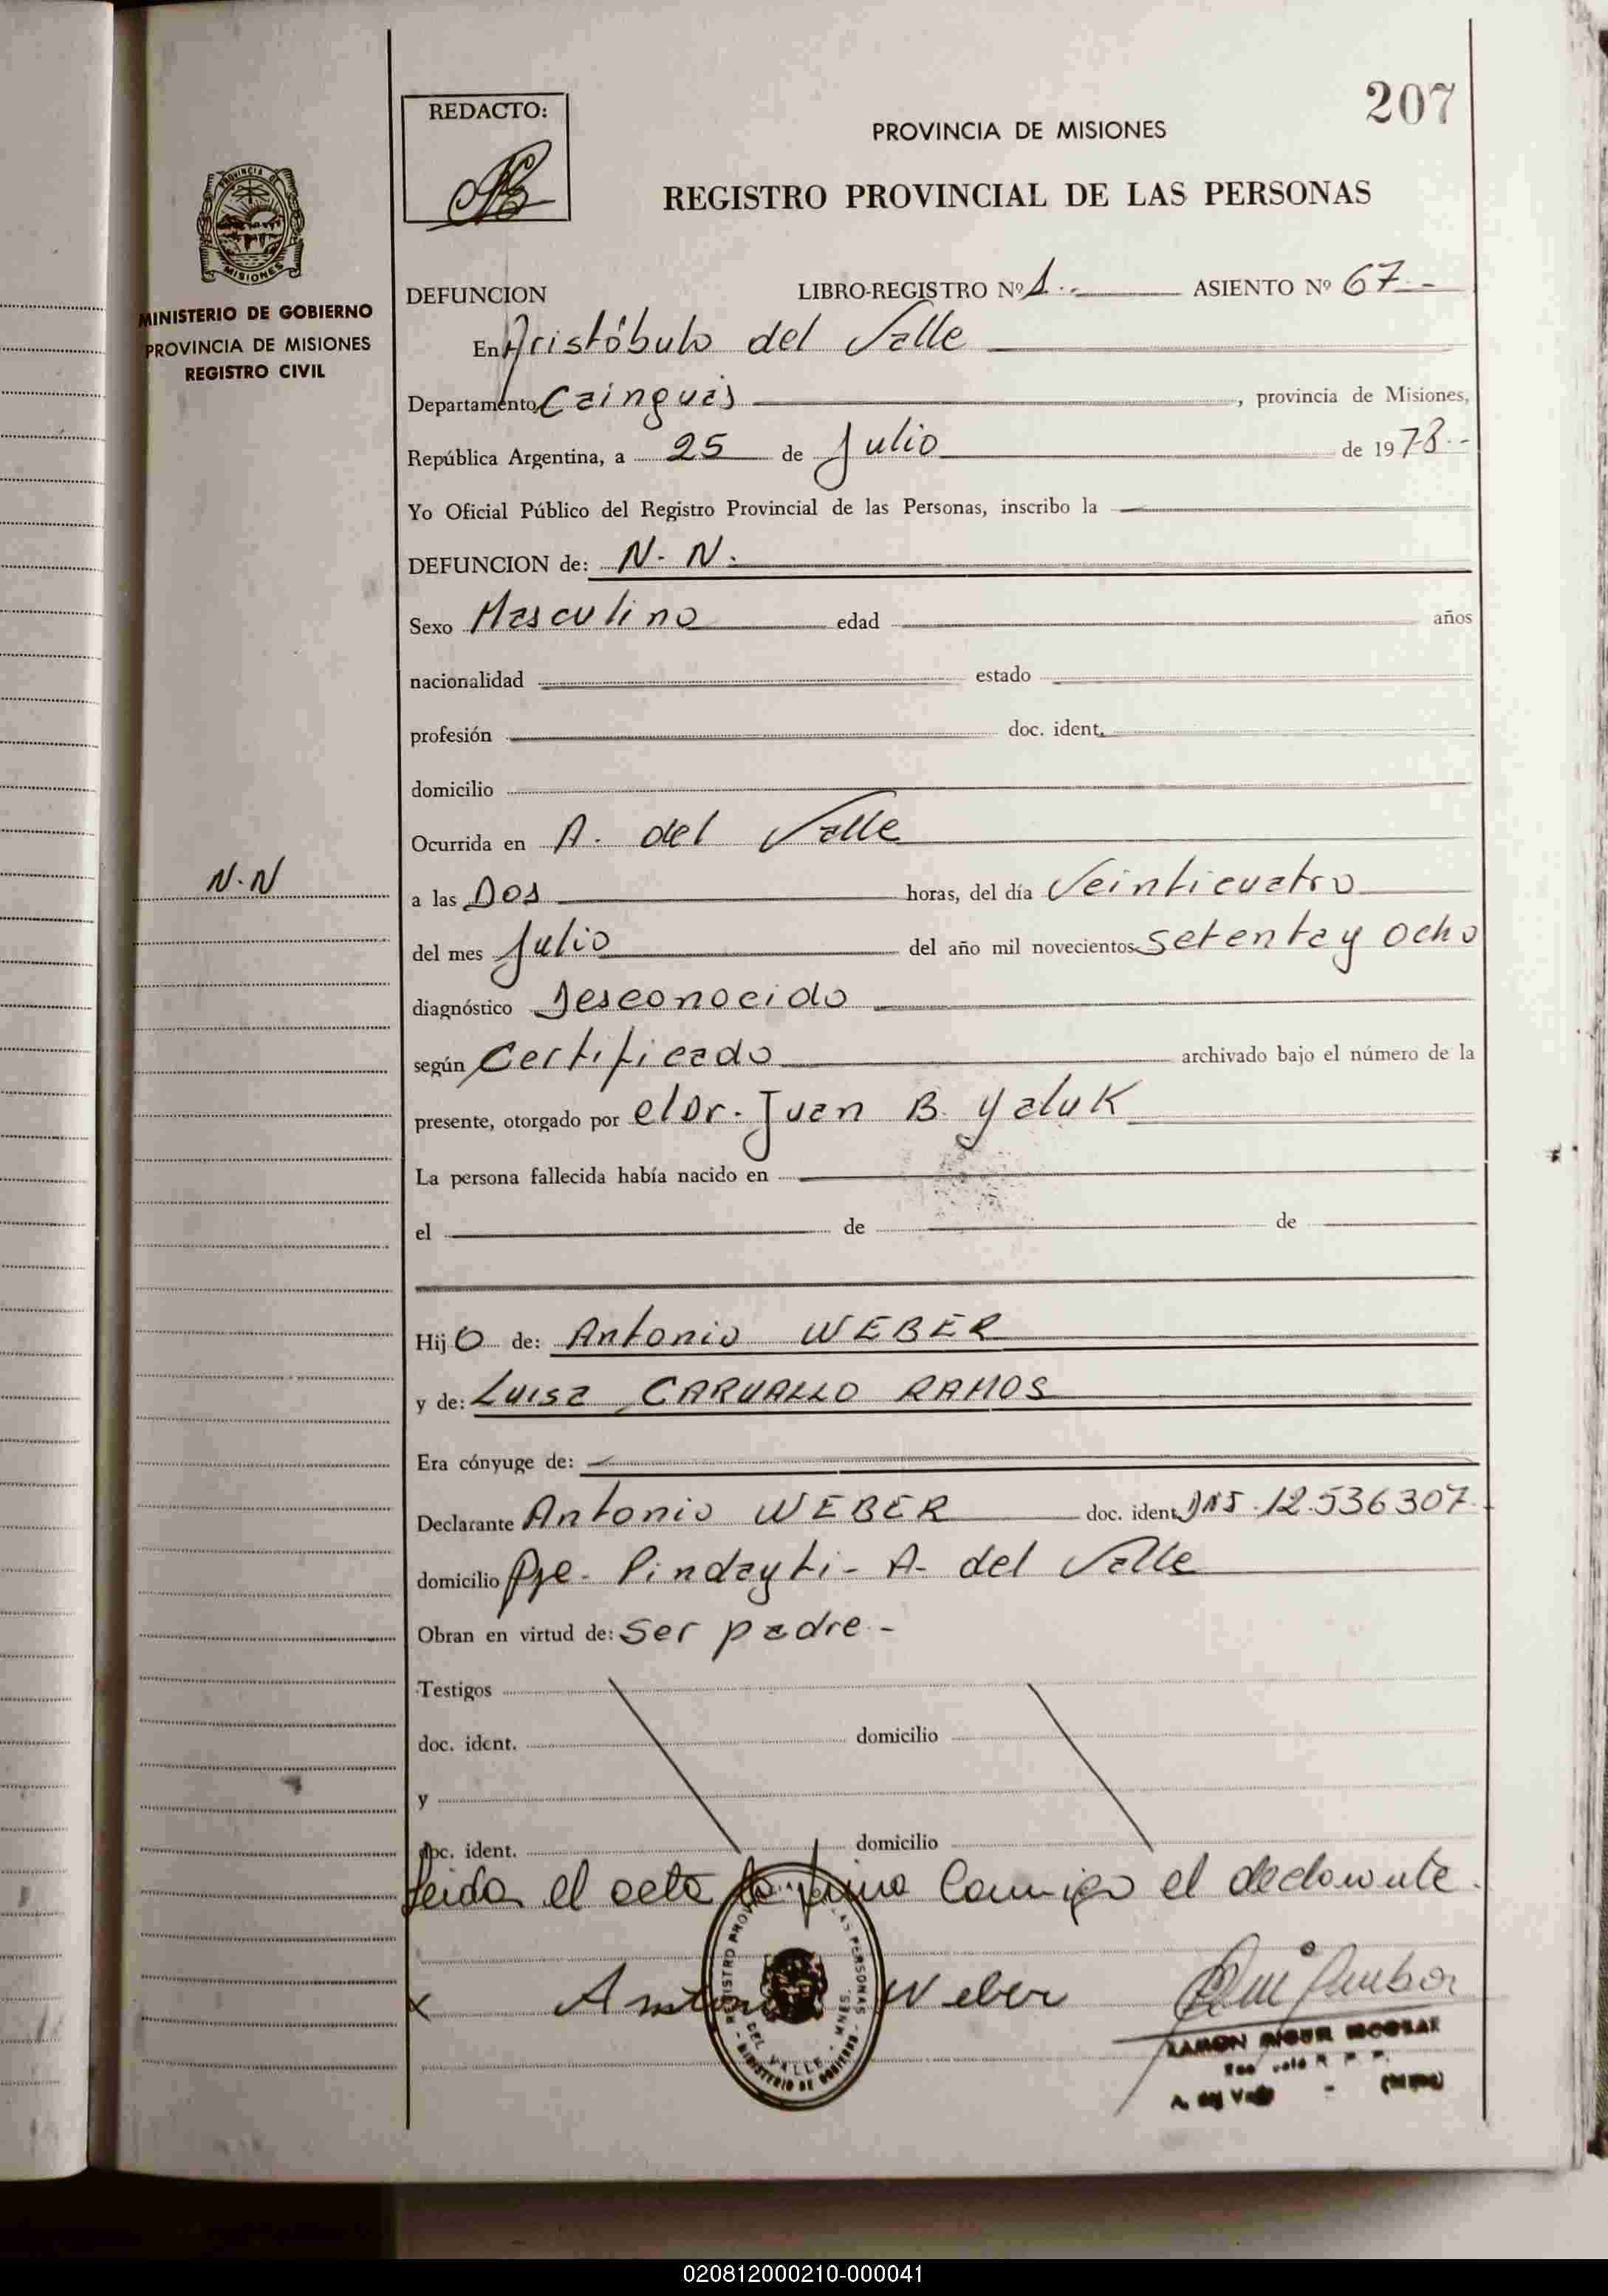 207
REDACTO:
PROVINCIA DE MISIONES
REGISTRO PROVINCIAL DE LAS PERSONAS
PROVINCIA DE
MISIONES
MINISTERIO DE GOBIERNO
PROVINCIA DE MISIONES
REGISTRO CIVIL
DEFUNCION LIBRO-REGISTRO Nº 1.- ASIENTO Nº 67.-
En Aristóbulo del Valle
Departamento Cainguás, provincia de Misiones,
República Argentina, a 25 de Julio de 1978.-
Yo Oficial Público del Registro Provincial de las Personas, inscribo la
DEFUNCION de: N. N.
Sexo Masculino edad años
nacionalidad estado
profesión doc. ident.
domicilio
Ocurrida en A. del Valle
N.N
a las Dos horas, del día Veinticuatro
del mes Julio del año mil novecientos setenta y ocho
diagnóstico Desconocido
según Certificado archivado bajo el número de la
presente, otorgado por el Dr. Juan B. Yaluk
La persona fallecida había nacido en
el de de
Hijo de: Antonio WEBER
y de: Luisa CARVALLO RAMOS
Era cónyuge de:
Declarante Antonio WEBER doc. ident. 12.536307.
domicilio Pje. Pindayti - A. del Valle
Obran en virtud de: Ser padre.-
Testigos
doc. ident. domicilio
y
doc. ident. domicilio
leida el acta la firma conmigo el declarante.
x Antonio Weber
REGISTRO PROVINCIAL DE LAS PERSONAS
DEL VALLE - MNES.
- MINISTERIO DE GOBIERNO -
RAMON
A. del Valle - (Mnes)
020812000210-000041